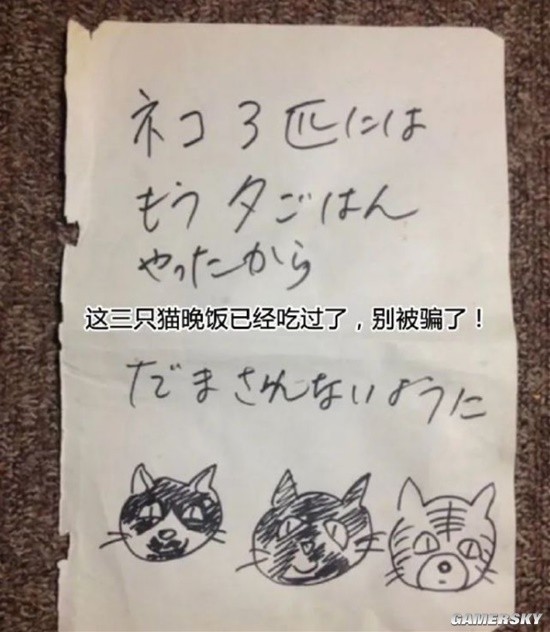 ネコ3匹には
もう夕ごはん
やったから
这三只猫晚饭已经吃过了，别被骗了！
だまされないように
GAMERSKY